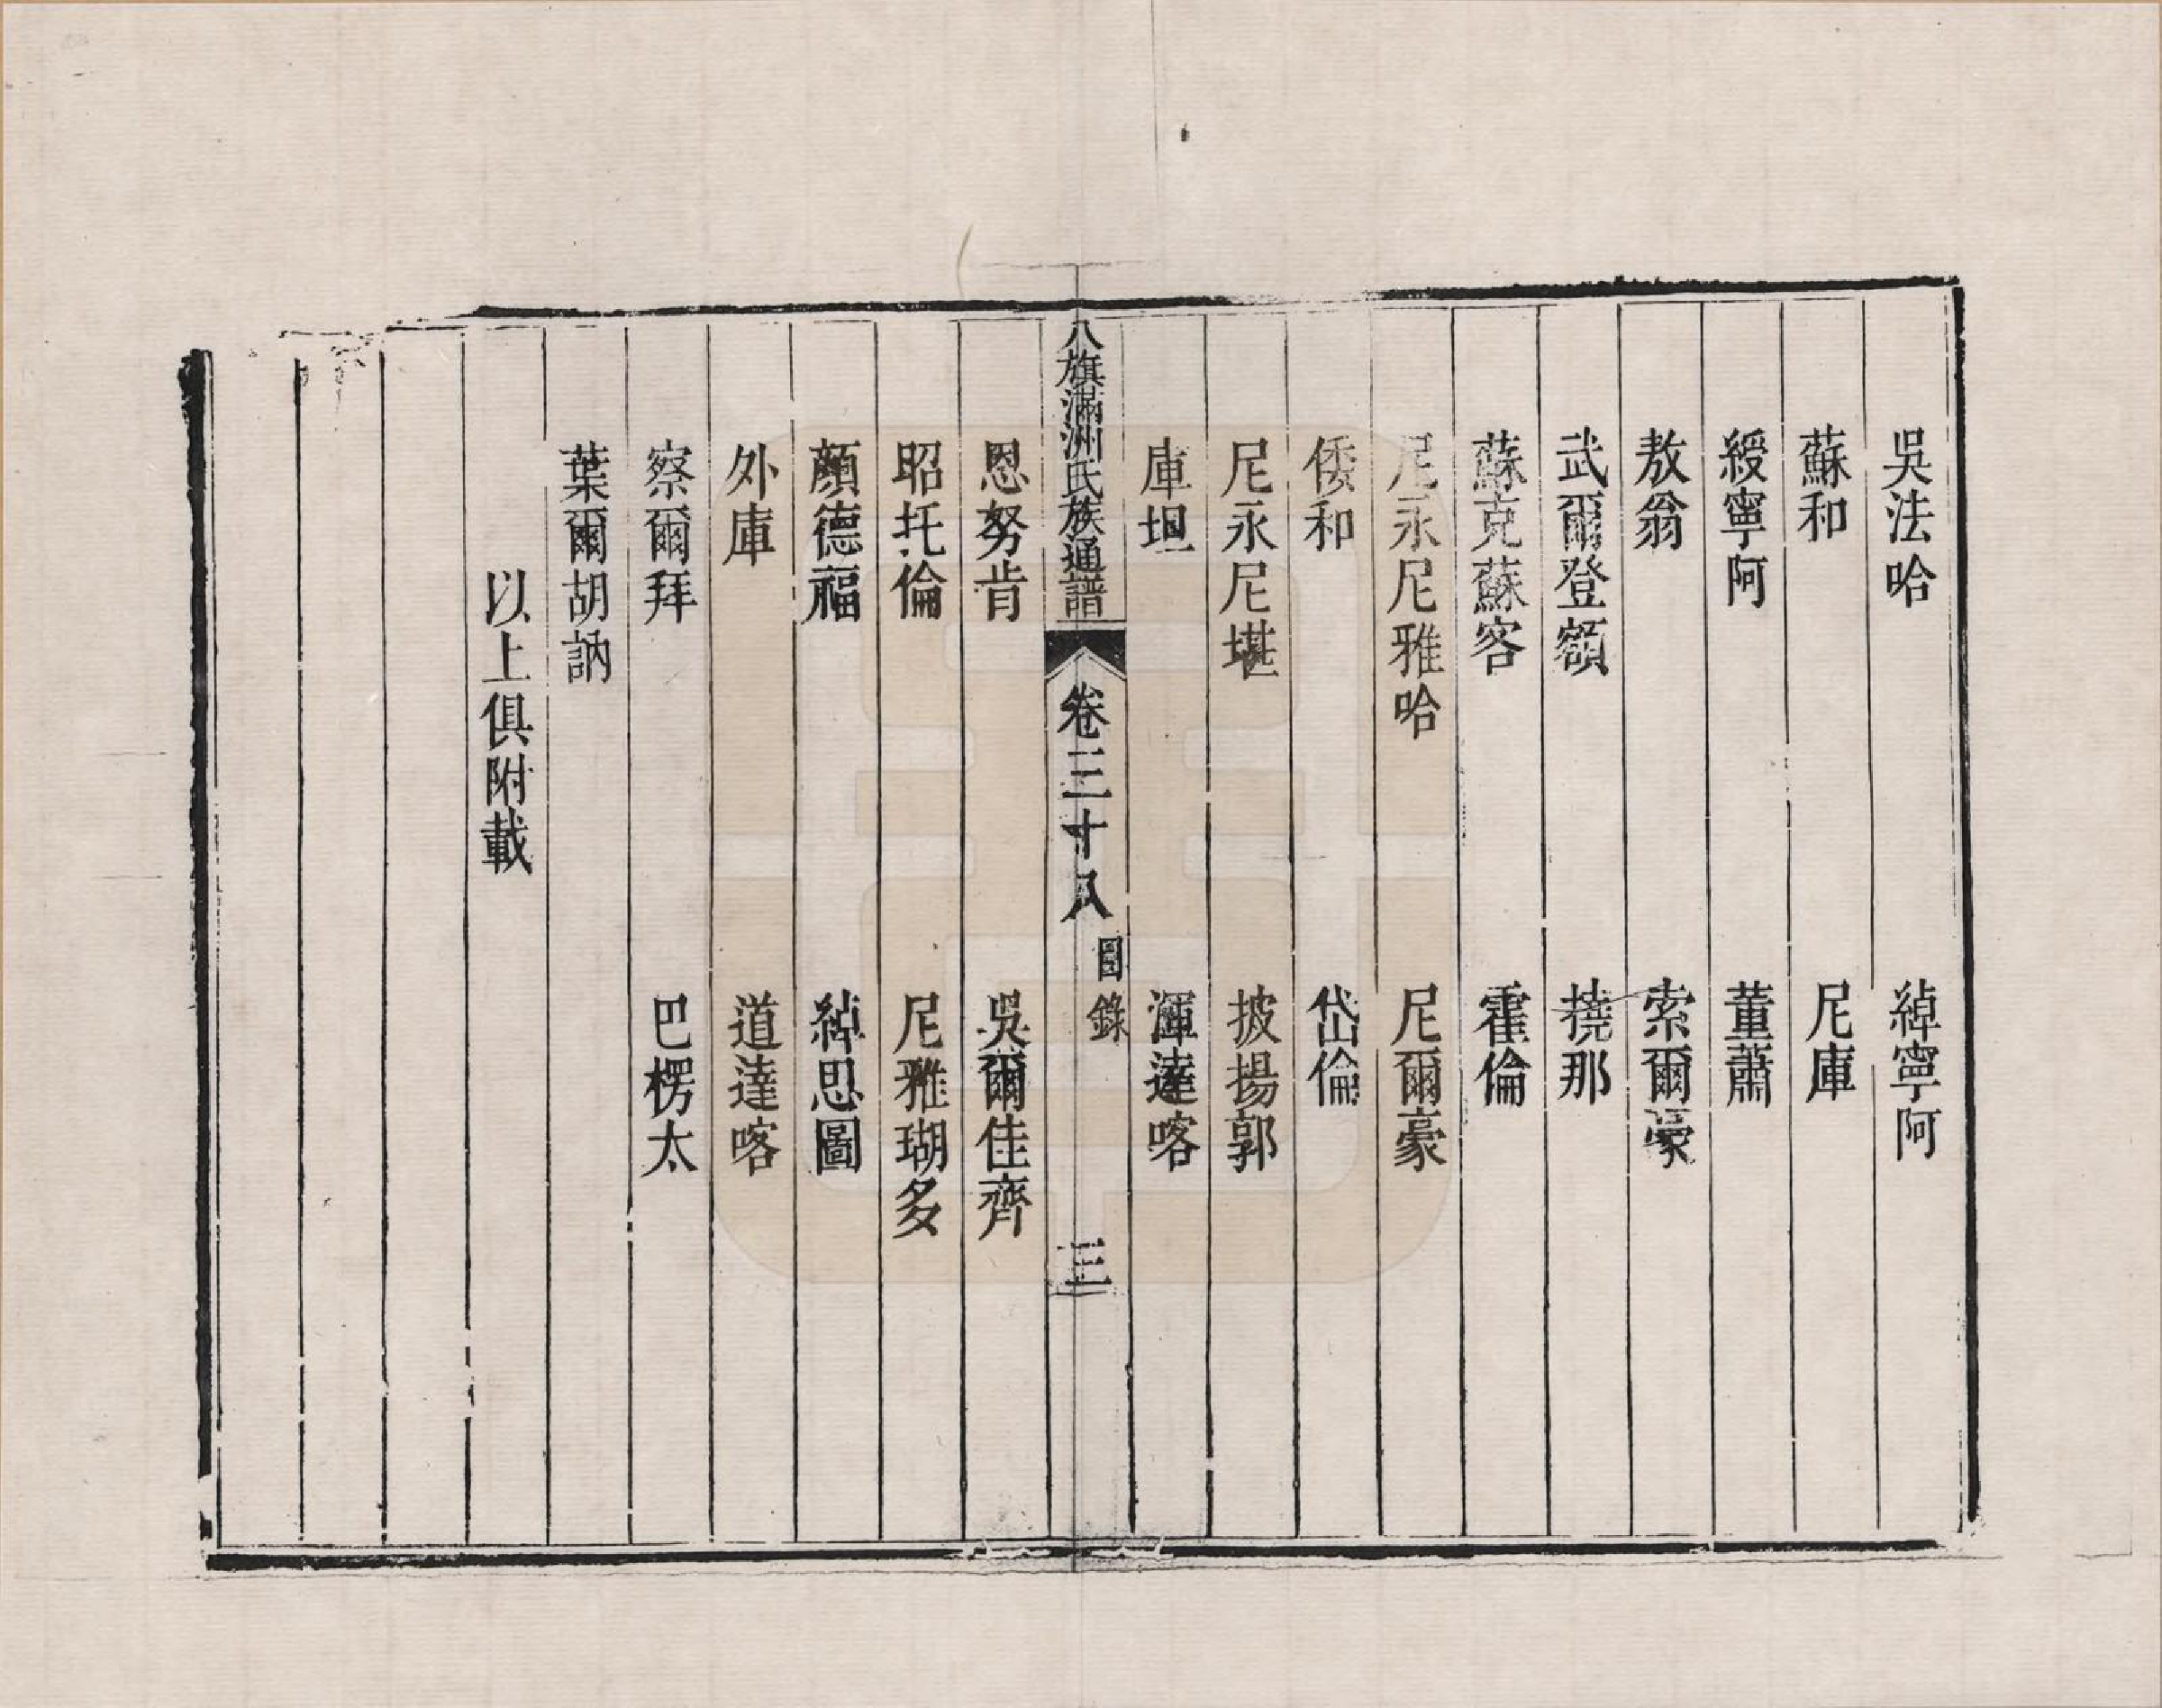 吳法哈　綽寧阿
蘇和　尼庫
綬寧阿　董蕭
敖翁　索爾豪
武爾登額　撓那
蘇克蘇客　霍倫
尼永尼雅哈　尼爾豪
倭和　岱倫
尼永尼堪　披揚郭
庫坦　渾達喀
八旗滿洲氏族通譜　卷三十八　目錄　三
恩努肯　吳爾佳齊
昭托倫　尼雅瑚多
顏德福　綽思圖
外庫　道達喀
察爾拜　巴楞太
葉爾胡訥
以上俱附載